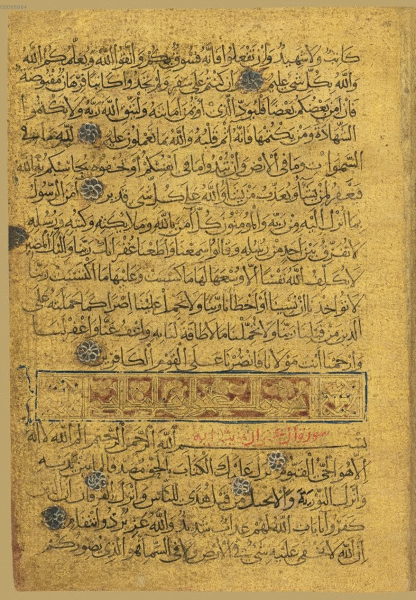 كاتب ولا شهيد وان تفعلوا فانه فسوق بكم واتقوا الله ويعلمكم الله
والله بكل شى عليم وان كنتم على سفر ولم تجدوا كاتبا فرهان مقبوضة
فان امن بعضكم بعضا فليود الذى اوتمن امانته وليتق الله ربه ولا تكتموا
الشهادة ومن يكتمها فانه اثم قلبه والله بما تعملون عليم لله ما فى
السموات وما فى الارض وان تبدوا ما فى انفسكم او تخفوه يحاسبكم به الله
فيغفر لمن يشا ويعذب من يشا والله على كل شى قدير امن الرسول
بما انزل اليه من ربه والمومنون كل امن بالله وملايكته وكتبه ورسله
لا نفرق بين احد من رسله وقالوا سمعنا واطعنا غفرانك ربنا واليك المصير
لا يكلف الله نفسا الا وسعها لها ما كسبت وعليها ما اكتسبت ربنا
لا تواخذنا ان نسينا او اخطانا ربنا ولا تحمل علينا اصرا كما حملته على
الذين من قبلنا ربنا ولا تحملنا ما لا طاقة لنا به واعف عنا واغفر لنا
وارحمنا انت مولانا فانصرنا على القوم الكافرين
سورة آل عمران
بسم الله الرحمن الرحيم الم الله لا اله
الا هو الحى القيوم نزل عليك الكتاب بالحق مصدقا لما بين يديه
وانزل التورية والانجيل من قبل هدى للناس وانزل الفرقان ان الذين
كفروا بايات الله لهم عذاب شديد والله عزيز ذو انتقام
ان الله لا يخفى عليه شى فى الارض ولا فى السما هو الذى يصوركم